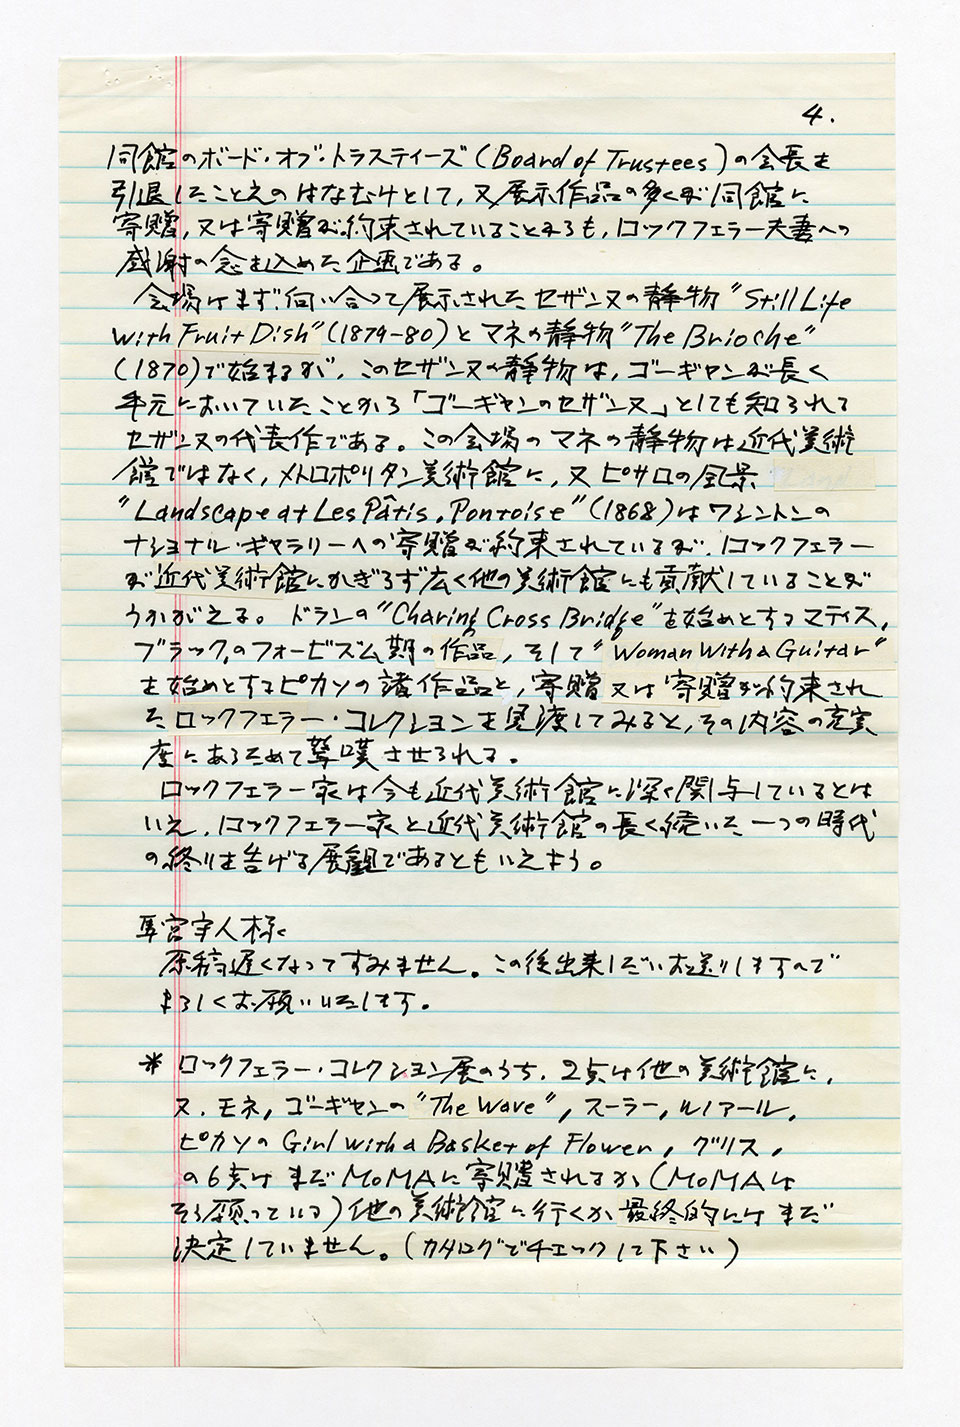 4.
同館のボード・オブ・トラスティーズ(Board of Trustees)の会長を
引退したことえのはなむけとして,又展示作品の多くが同館に
寄贈,又は寄贈が約束されていることからも,ロックフェラー夫妻への
感謝の念を込めた企画である。
会場はまず,向い合って展示されたセザンヌの静物"Still Life
with Fruit Dish"(1879-80)とマネの静物"The Brioche"
(1870)で始まるが,このセザンヌの静物は,ゴーギャンが長く
手元においていたことから「ゴーギャンのセザンヌ」としても知られる
セザンヌの代表作である。この会場のマネの静物は近代美術
館ではなく,メトロポリタン美術館に,又ピサロの風景
"Landscape at Les Pâtis, Pontoise"(1868)はワシントンの
ナショナル・ギャラリーへの寄贈が約束されているが,ロックフェラー
が近代美術館にかぎらず広く他の美術館にも貢献していることが
うかがえる。ドランの"Charing Cross Bridge"を始めとするマティス,
ブラック,のフォービズム期の作品,そして"Woman With a Guitar"
を始めとするピカソの諸作品と,寄贈又は寄贈が約束され
たロックフェラー・コレクションを見渡してみると,その内容の充実
度にあらためて驚嘆させられる。
ロックフェラー家は今も近代美術館に深く関与しているとは
いえ,ロックフェラー家と近代美術館の長く続いた一つの時代
の終りを告げる展観であるともいえよう。
宇人様
原稿遅くなってすみません。この後出来しだいお送りしますので
よろしくお願いいたします。
* ロックフェラー・コレクション展のうち,2点は他の美術館に,
又,モネ,ゴーギャンの"The Wave",スーラー,ルノアール,
ピカソのGirl with a Basket of Flower,グリス,
の6点はまだMoMAに寄贈されるか(MoMAは
そう願っている)他の美術館に行くか最終的にはまだ
決定していません。(カタログでチェックして下さい)